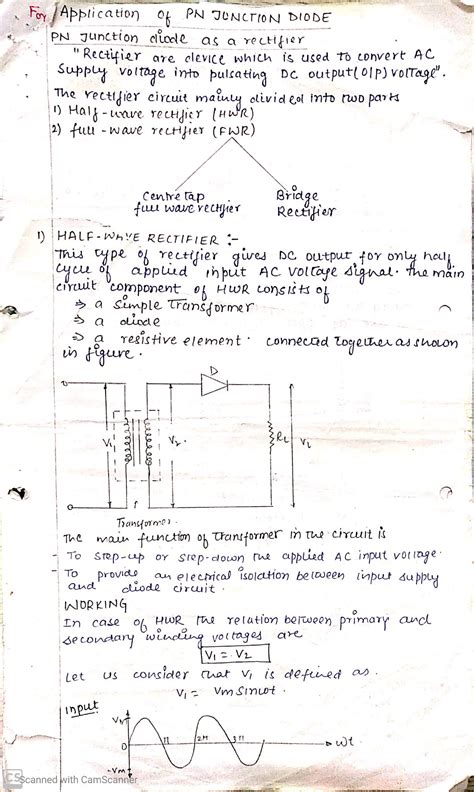 For Application of PN JUNCTION DIODE
PN Junction diode as a rectifier
"Rectifier are device which is used to convert AC
Supply voltage into pulsating DC output (O/P) voltage".
The rectifier circuit mainly divided into two parts
1) Half-wave rectifier (HWR)
2) full-wave rectifier (FWR)
Centre tap
full wave rectifier
Bridge
Rectifier
1) HALF-WAVE RECTIFIER :-
This type of rectifier gives DC output for only half
cycle of applied input AC voltage signal. The main
circuit component of HWR consists of
⇒ a simple Transformer
⇒ a diode
⇒ a resistive element. connected together as shown
in figure.
D
V1
V2.
RL
VL
Transformer.
The main function of transformer in the circuit is
- To step-up or step-down the applied AC input voltage.
- To provide an electrical isolation between input supply
and diode circuit.
WORKING
In case of HWR the relation between primary and
secondary winding voltages are
V1 = V2
Let us consider that V1 is defined as.
V1 = Vm Sinωt.
Input
Vm
0
π
2π
3π
ωt.
-Vm
CS Scanned with CamScanner